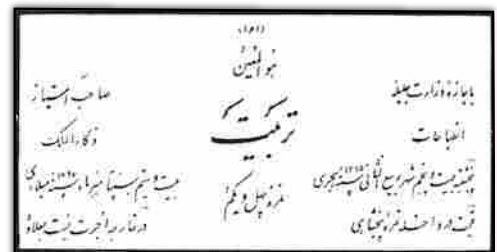 هو المعین
تربیت
نمره چهل و یکم
باجازهٔ وزارت جلیلهٔ
انطباعات
پنجشنبه بیست و پنجم شهر ربیع الثانی سنه ۱۳۱۵ هجری
قیمت در داخله نمره پنجشاهی
صاحب امتیاز
ذکاء الملک
بیست و سیم سپتامبر ماه سنه ۱۸۹۷ میلادی
در خارجه اجرت پست بعلاوه